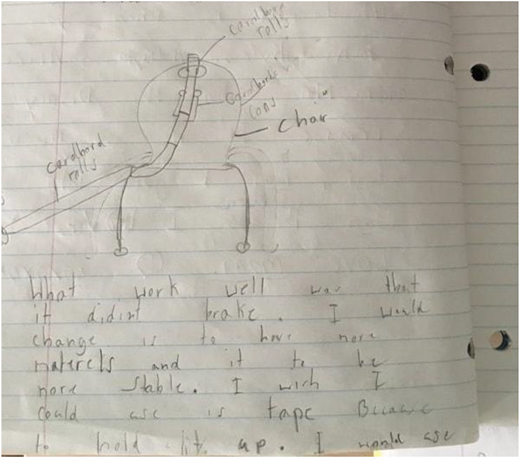 cardbord
rolls
cardbord
cons
chair
cardbord
rolls
What work well was that
it didint brake. I would
change is to have more
materels and it to be
more stable. I wich I
could use is tape Because
to hold it up. I would use